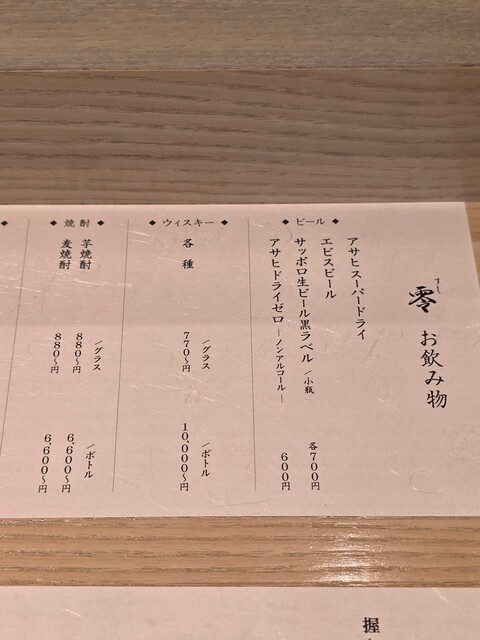 零 お飲み物
◆ ビール ◆
アサヒスーパードライ
エビスビール
サッポロ生ビール黒ラベル /小瓶 各700円
アサヒドライゼロ ―ノンアルコール― 600円
◆ ウィスキー ◆
/グラス /ボトル
各種 770〜円 10,000〜円
◆ 焼酎 ◆
/グラス /ボトル
芋焼酎 880〜円 6,600〜円
麦焼酎 880〜円 6,600〜円
◆
握